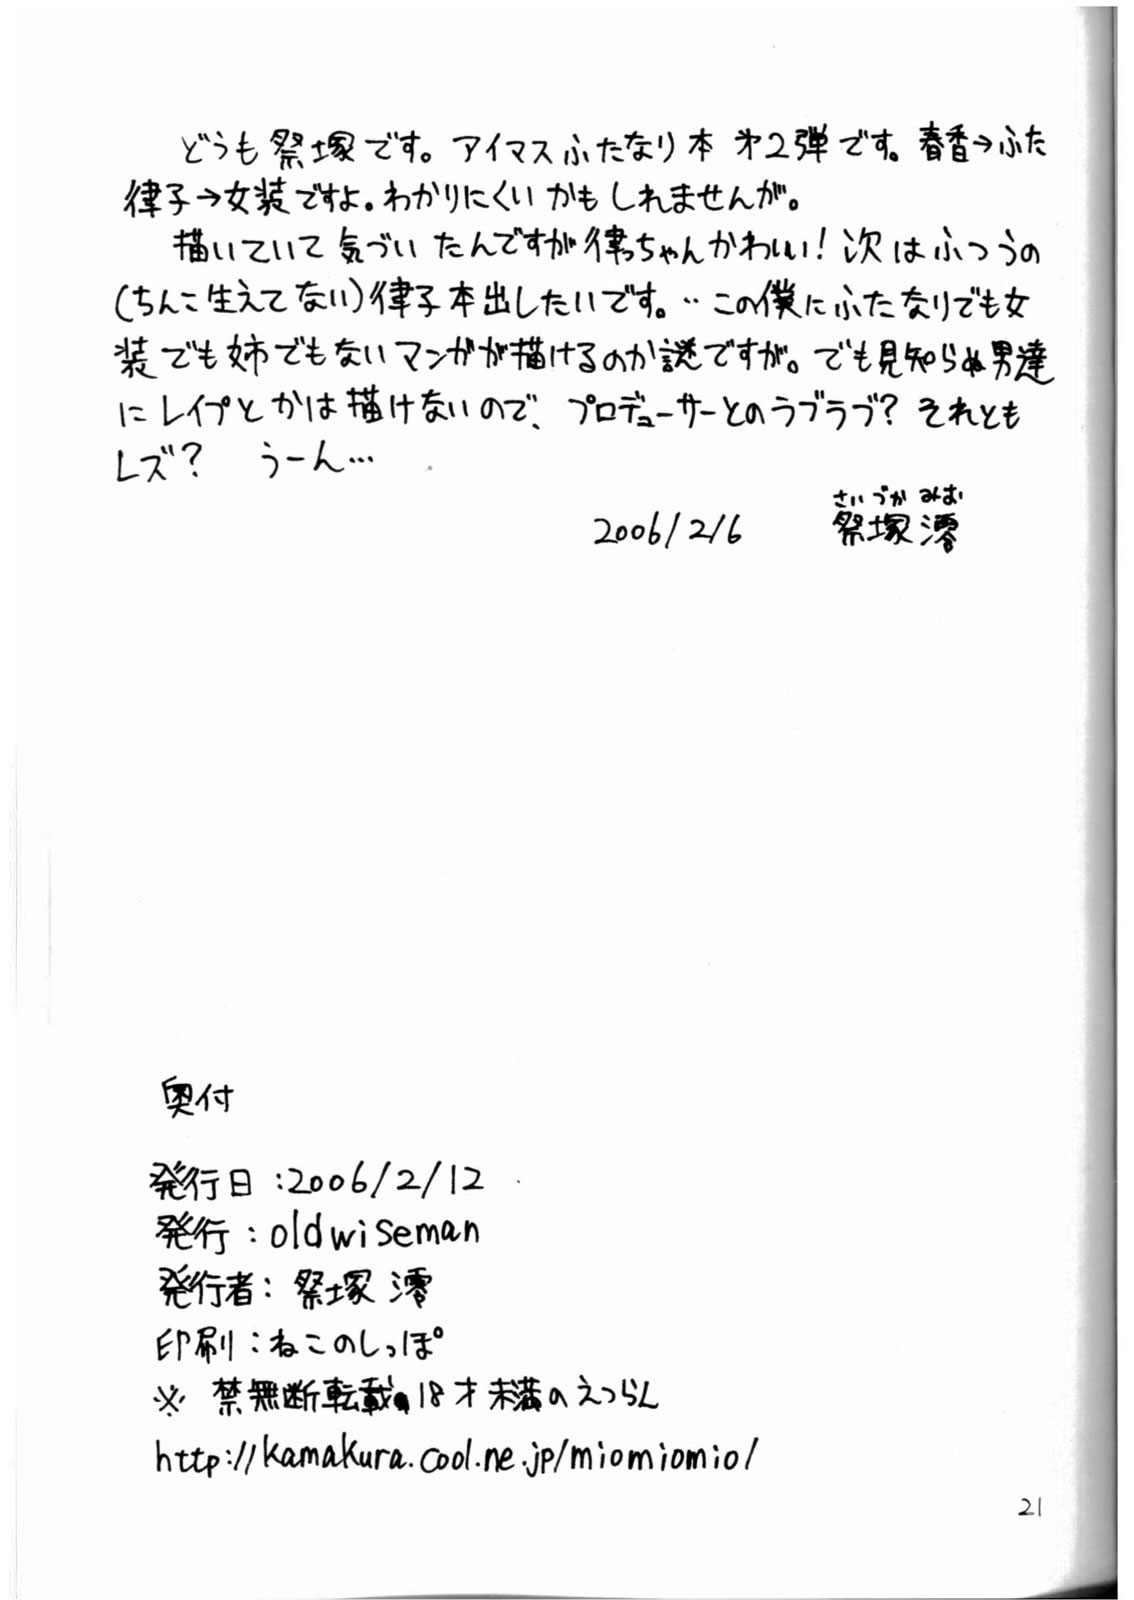 どうも祭塚です。アイマスふたなり本 第2弾です。春香→ふた
律子→女装ですよ。わかりにくいかもしれませんが。
描いていて気づいたんですが律っちゃんかわいい！次はふつうの
（ちんこ生えてない）律子本出したいです。‥この僕にふたなりでも女
装でも姉でもないマンガが描けるのか謎ですが。でも見知らぬ男達
にレイプとかは描けないので、プロデューサーとのラブラブ？それとも
レズ？　うーん…
さいづか みお
2006/2/6　祭塚 澪
奥付
発行日：2006/2/12
発行：oldwiseman
発行者：祭塚 澪
印刷：ねこのしっぽ
※ 禁無断転載・18才未満のえつらん
http://kamakura.cool.ne.jp/miomiomio/
21